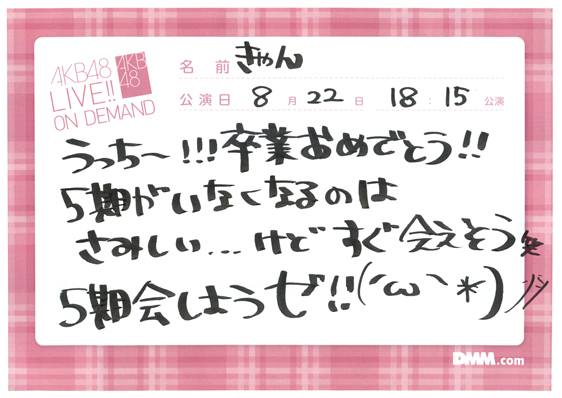 AKB48
LIVE!!
ON DEMAND
AKB
48
名前 きゃん
公演日 8月22日 18:15公演
うっち〜!!!卒業おめでとう!!
5期がいなくなるのは
さみしい...けどすぐ会えそう笑
5期会しようぜ!!(´ω｀*)
DMM.com